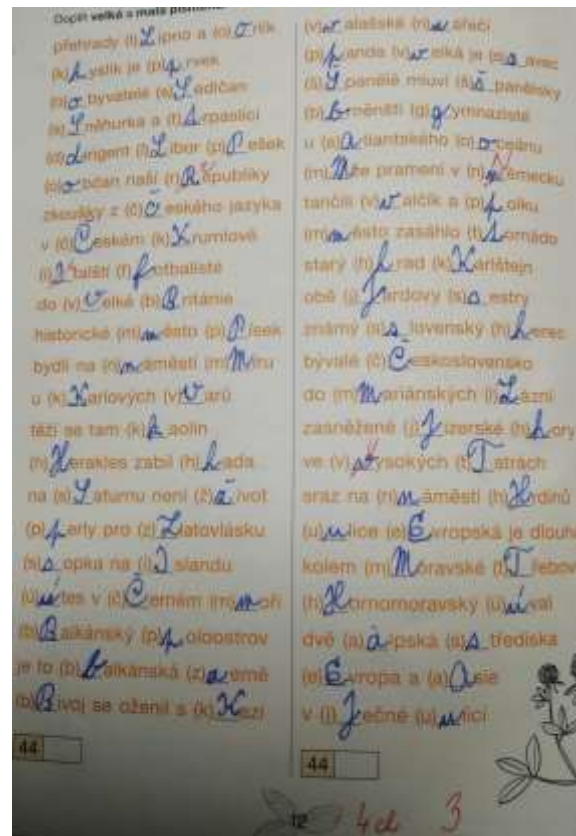 Doplň velká a malá písmena.
přehrady (l) Lipno a (o) Orlík
(k) kyslík je (p) prvek
(o) obyvatelé (s) Sedlčan
(s) Sněhurka a (t) trpaslíci
(d) dirigent (l) Libor (p) Pešek
(o) občan naší (r) Republiky
zkoušky z (č) Českého jazyka
v (č) Českém (k) Krumlově
(i) Italští (f) fotbalisté
do (v) Velké (b) Británie
historické (m) město (p) Písek
bydlí na (n) náměstí (m) Míru
u (k) Karlových (v) Varů
těží se tam (k) kaolin
(h) Herakles zabil (h) hada
na (s) Saturnu není (ž) život
(p) perly pro (z) Zlatovlásku
(s) sopka na (i) Islandu
(ú) útes v (č) Černém (m) moři
(b) Balkánský (p) poloostrov
je to (b) balkánská (z) země
(b) Bivoj se oženil s (k) Kazi
44
(v) valašské (n) nářečí
(p) panda (v) velká je (s) savec
(š) Španělé mluví (š) španělsky
(b) brněnští (g) gymnazisté
u (a) Atlantského (o) oceánu
(m) Mže pramení v (n) Německu
tančili (v) valčík a (p) polku
(m) město zasáhlo (t) tornádo
starý (h) hrad (k) Karlštejn
obě (j) Jardovy (s) sestry
známý (s) slovenský (h) herec
bývalé (č) Československo
do (m) Mariánských (l) Lázní
zasněžené (j) Jizerské (h) hory
ve (v) vysokých (t) Tatrách
sraz na (n) náměstí (h) Hrdinů
(u) ulice (e) Evropská je dlouh
kolem (m) Moravské (t) Třebov
(h) Hornomoravský (ú) úval
dvě (a) alpská (s) střediska
(e) Evropa a (a) Asie
v (j) Ječné (u) ulici
44
12
4ch 3